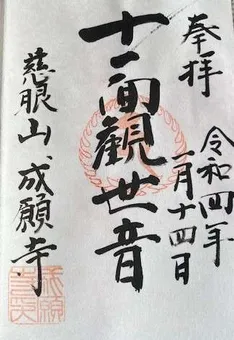 奉拝
令和四年
一月十四日
十一面観世音
慈眼山成願寺